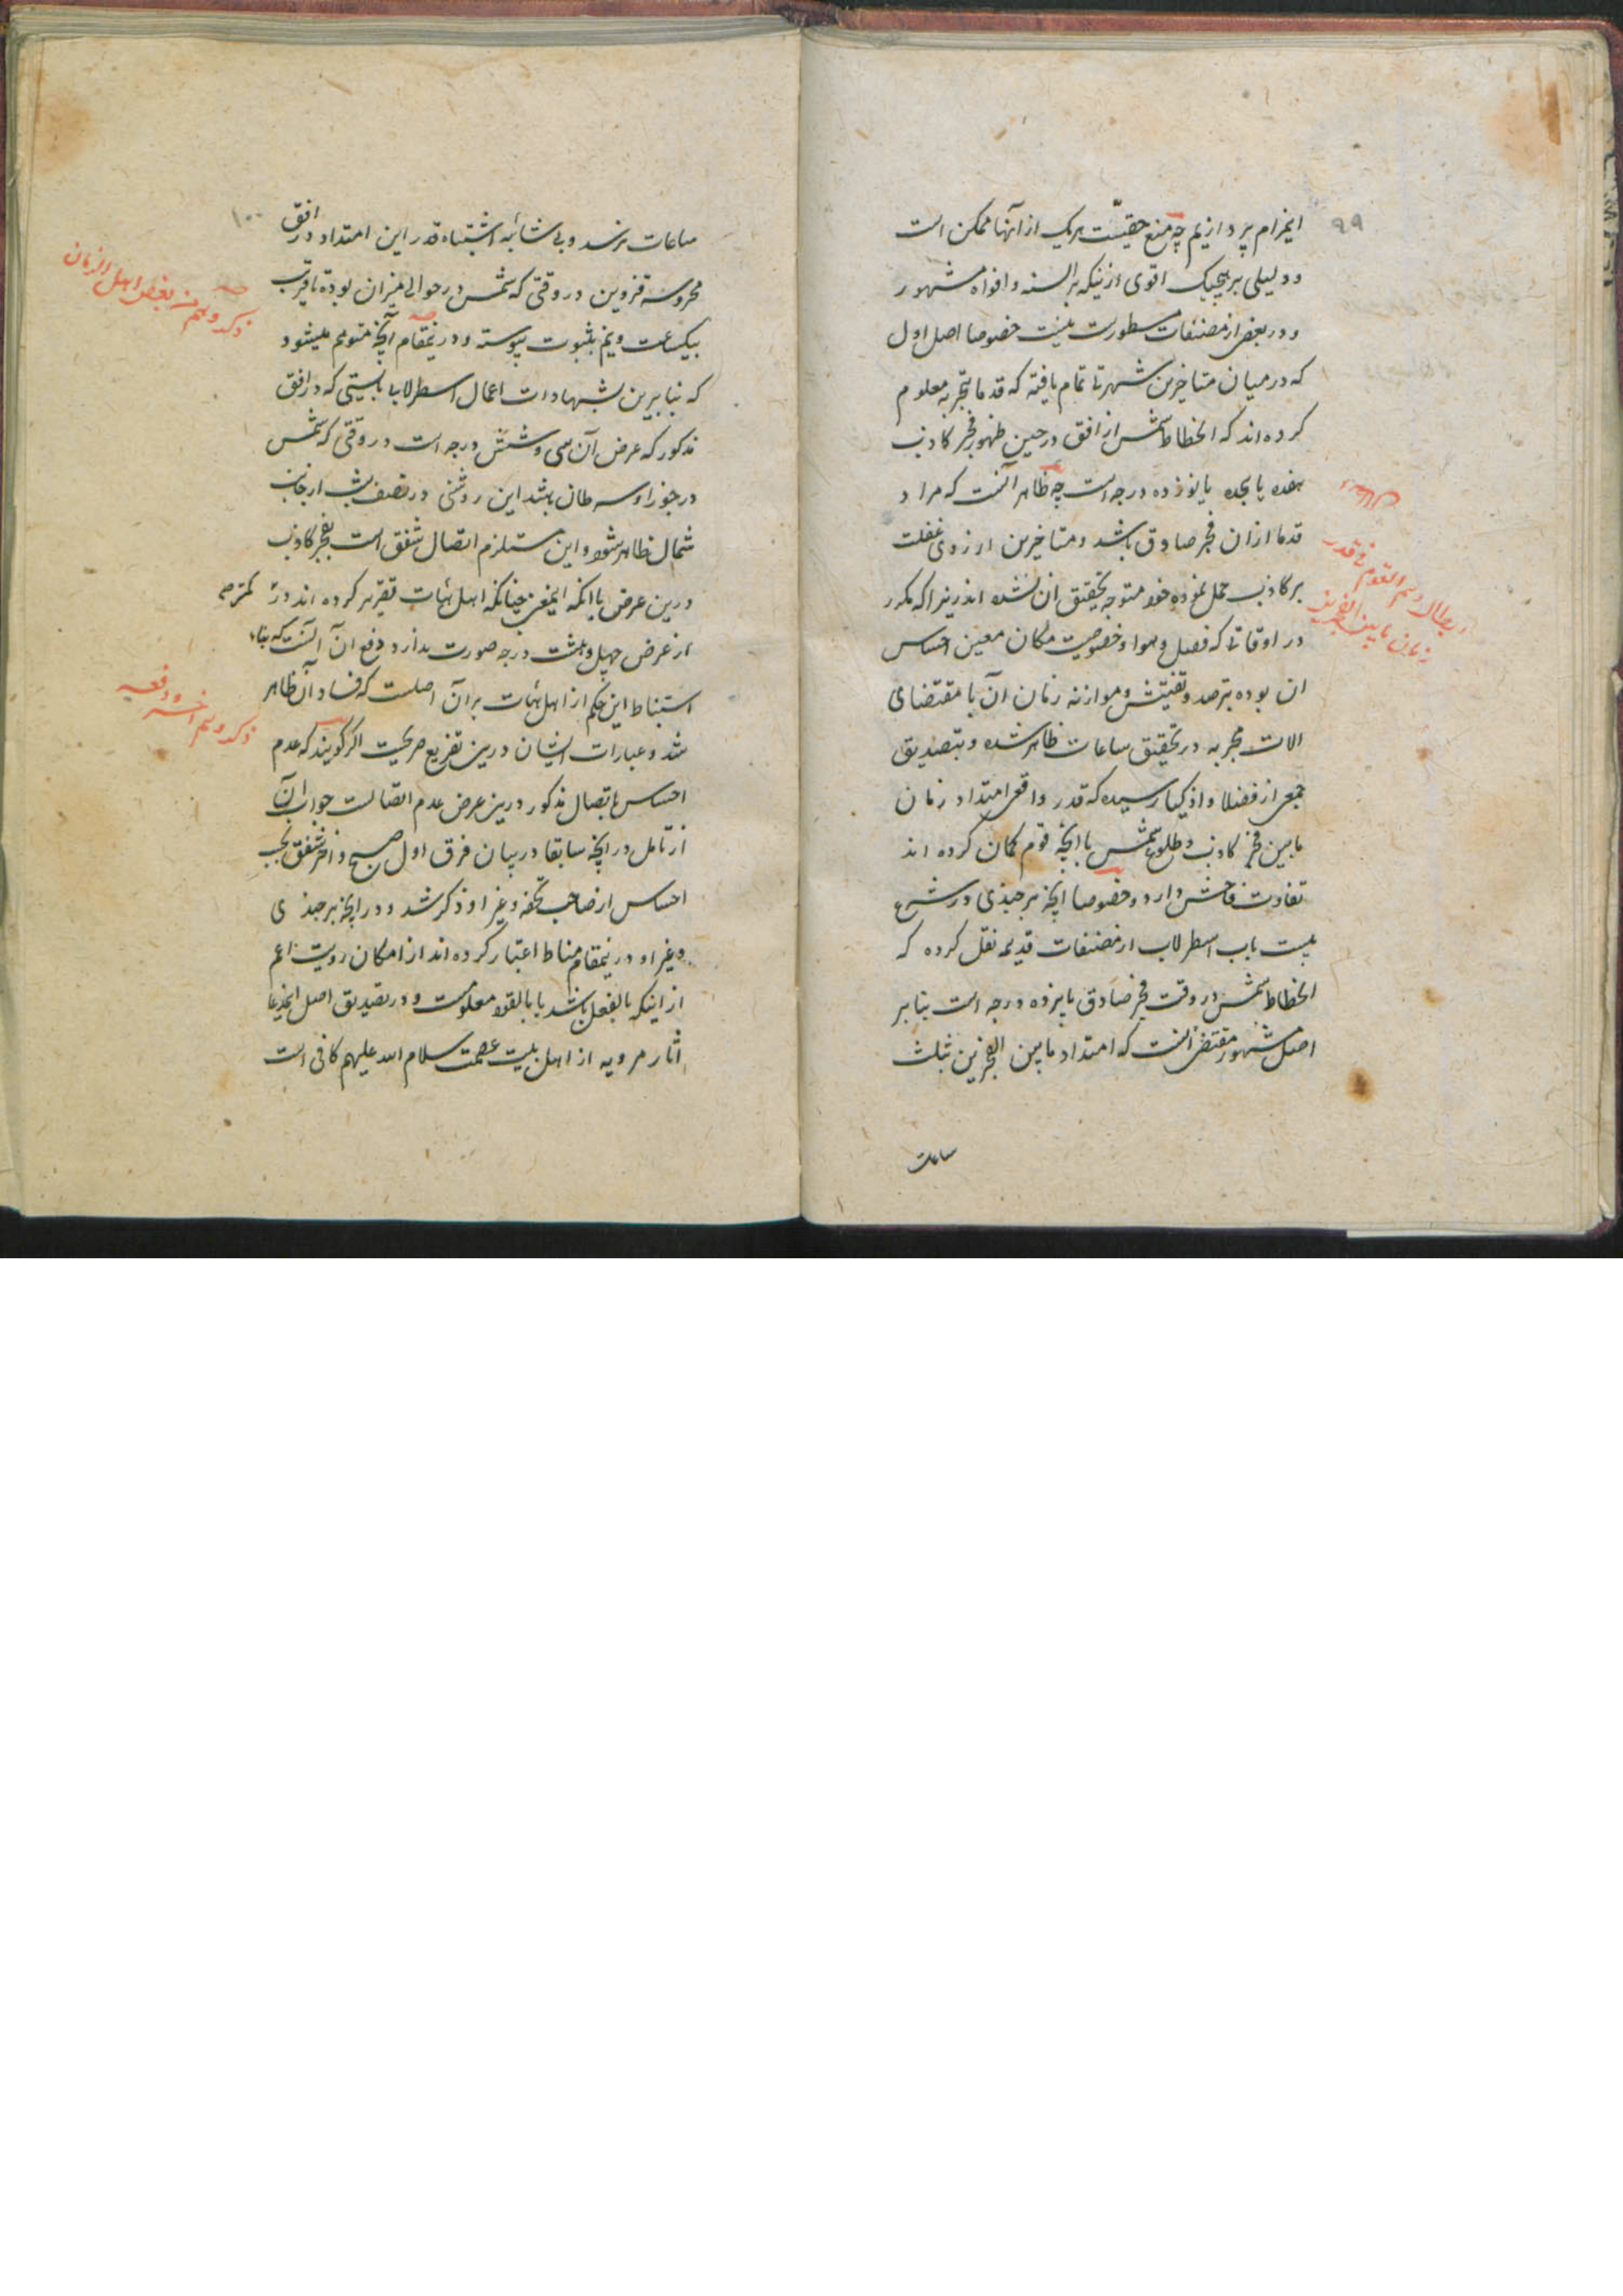 ۹۹
اینمرام پردازیم چه منع حقیّت هریک از آنها ممکن است
و دلیلی بر هیچیک اقوی از نیکه بر السنه و افواه مشهور
و در بعض از مصنفات مسطورست نیست خصوصا اصل اول
که در میان متاخرین شهرتا تمام یافته که قدما بتجربه معلوم
کرده‌اند که انحطاط شمس از افق در حین ظهور فجر کاذب
هفده یا هجده یا نوزده درجه است چه ظاهر آنست که مراد
قدما ازان فجر صادق باشد و متاخرین از روی غفلت
بر کاذب حمل نموده خود متوجه تحقیق ان نشده اند زیرا که مکرر
در اوقاتی که فصل و هوا و خصوصیت مکان معین احساس
ان بوده بترصد و تفتیش و موازنه زمان آن با مقتضای
الات مجربه در تحقیق ساعات ظاهر شده و بتصدیق
جمعی از فضلا و اذکیا رسیده که قدر واقعی امتداد زمان
مابین فجر کاذب و طلوع شمس با آنچه قوم گمان کرده اند
تفاوت فاحش دارد و خصوصا آنچه برجندی در شرح
بیست باب اسطرلاب از مصنفات قدیمه نقل کرده که
انحطاط شمس در وقت فجر صادق پانزده درجه است بنابر
اصل مشهور مقتضی آنست که امتداد مابین الفجرین ثلث
ساعت
ابطال وهم القوم فی قدر
زمان مابین الفجرین
۱۰۰
ساعات نرسد و بی شائبه اشتباه قدر این امتداد در افق
محروسه قزوین در وقتی که شمس در حوالی میزان بوده تا قریب
بیکساعت و نیم بثبوت پیوسته و درینمقام آنچه متوهم میشود
که بنابرین بشهادات اعمال اسطرلاب بایستی که در افق
مذکور که عرض آن سی و شش درجه است در وقتی که شمس
در جوزا و سرطان باشد این روشنی در نصف شب از جانب
شمال ظاهر شود و این مستلزم اتصال شفق است بفجر کاذب
درین عرض با آنکه اینمعنی چنانکه اهل هیات تقریر کرده اند در کمتر
از عرض چهل و هشت درجه صورت ندارد دفع ان آنست که بناء
استنباط این حکم از اهل هیات بر آن اصلست که فساد آن ظاهر
شد و عبارات ایشان درین تفریع صریحست اگر گویند که عدم
احساس باتصال مذکور درین عرض عدم اتصالست جواب آن
از تامل در آنچه سابقا در بیان فرق اول صبح و اخر شفق بحسب
احساس از صاحب تحفه و غیر او ذکر شد و در آنچه برجندی
و غیر او درینمقام مناط اعتبار کرده اند از امکان رویت اعم
از اینکه بالفعل باشد یا بالقوه معلومست و در تصدیق اصل اینمدعا
اثار مرویه از اهل بیت عصمت سلام الله علیهم کافی است
ذکر وهم من بعض اهل الزمان
ذکر وهم اخر و دفعه